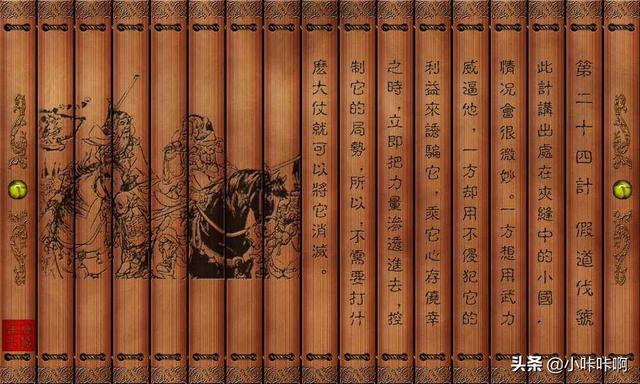 第二十四計 假道伐號
此計講出處在夾縫中的小國,
情况會很微妙。一方想用武力
威逼他,一方却用不侵犯它的
利益來誘騙它,乘它心存僥幸
之時,立即把力量滲透進去,控
制它的局勢,所以,不需要打什
麽大仗就可以將它消滅。
头条 @小咔咔啊